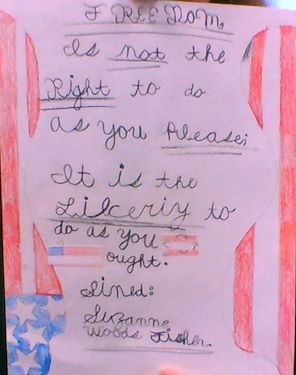 FREEDOM
Is not the
Right to do
as you Please;
It is the
Likeriy to
do as you
ought.
Sined:
Suzanne
Woods Fisher.